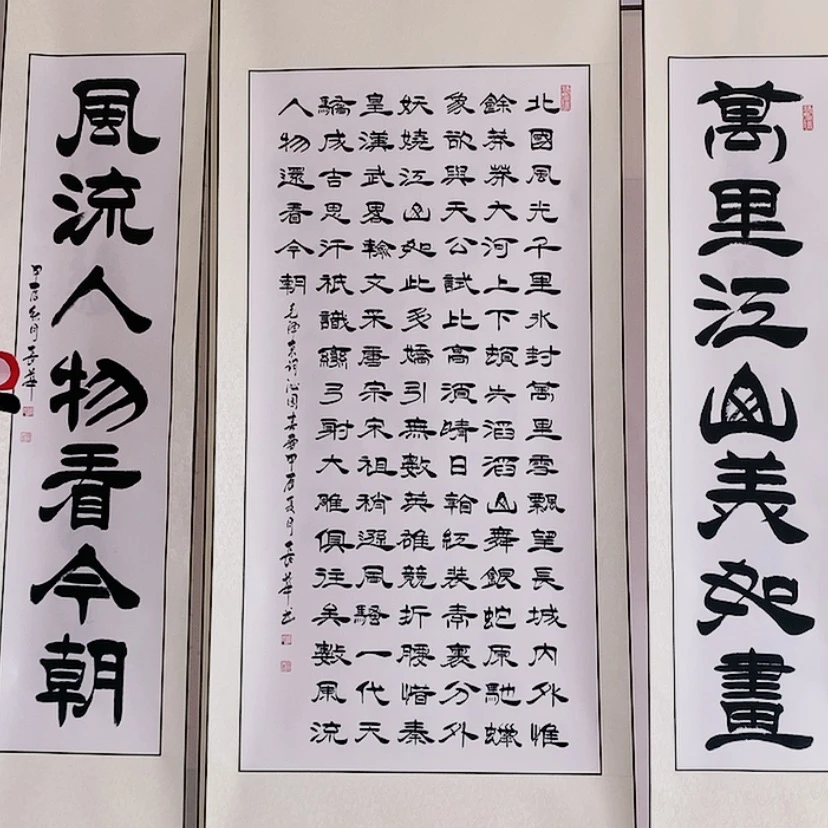 萬里江山美如畫
北國風光千里氷封萬里雪飄望長城內外惟
餘莽莽大河上下頓失滔滔山舞銀蛇原馳蠟
象欲與天公試比高須晴日看紅裝素裹分外
妖嬈江山如此多嬌引無數英雄競折腰惜秦
皇漢武畧輸文采唐宗宋祖稍遜風騷一代天
驕成吉思汗祇識彎弓射大雕俱往矣數風流
人物還看今朝
毛澤東詞沁園春雪甲辰夏月
風流人物看今朝
甲辰